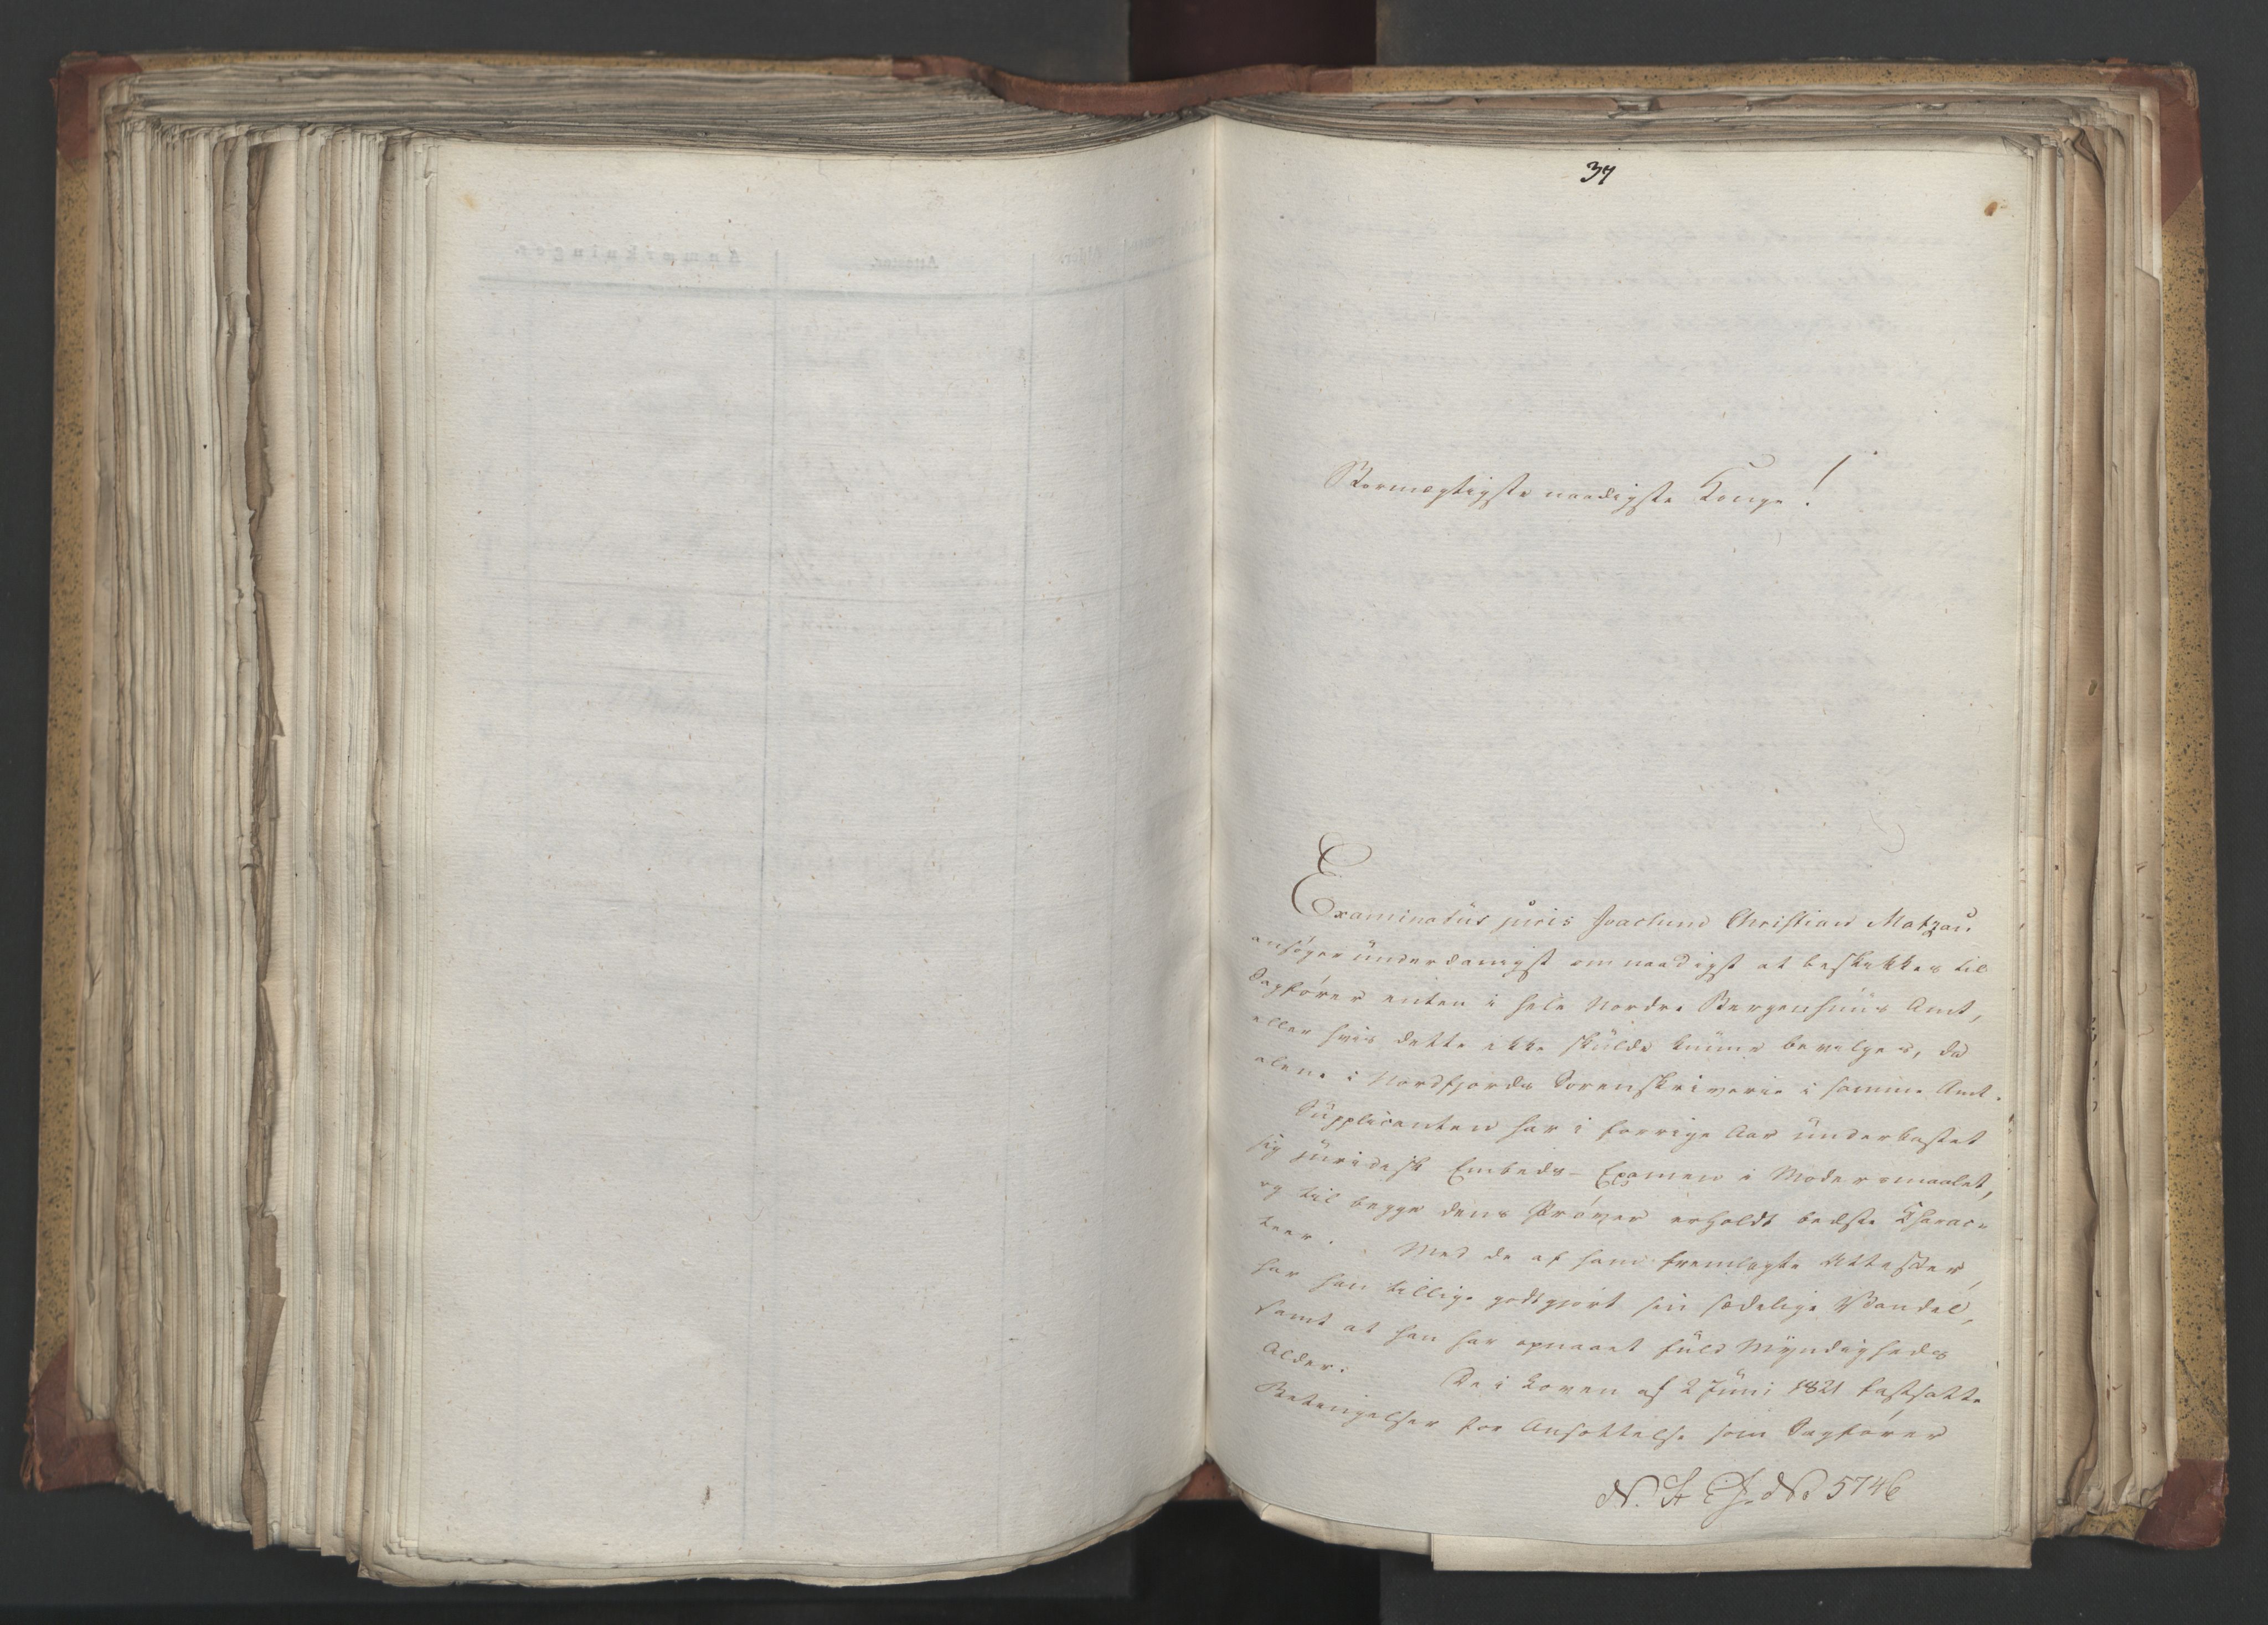 34
Stormægtigste naadigste Konge!
Examinatus juris Joachim Christian Matzau
ansøger underdanigst om naadigst at beskikkes til
Sagfører enten i hele Nordre Bergenhuus Amt,
eller hvis dette ikke skulde kunne bevilges, da
alene i Nordfjords Sorenskriverie i samme Amt.
Supplicanten har i forrige Aar underkastet
sig juridisk Embeds-Examen i Modersmaalet,
og til begge dens Prøver erholdt bedste Charac-
teer. Med de af ham fremlagte Attester,
har han tillige godtgjort sin sædelige Vandel,
samt at han har opnaaet fuld Myndigheds
Alder. De i Loven af 2 Juni 1821 fastsatte
Betingelser for Ansættelse som Sagfører
No 5746
Anmærkninger.
Attester.
Alder.